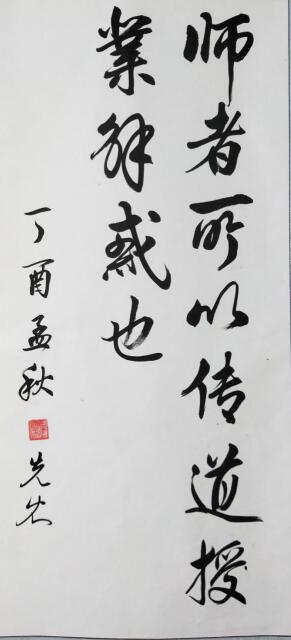 师者所以传道授
业解惑也
丁酉孟秋